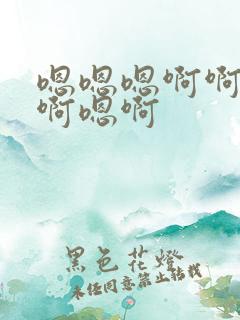 嗯嗯嗯啊啊
啊嗯啊
黑色花燈
未经同意禁止转载